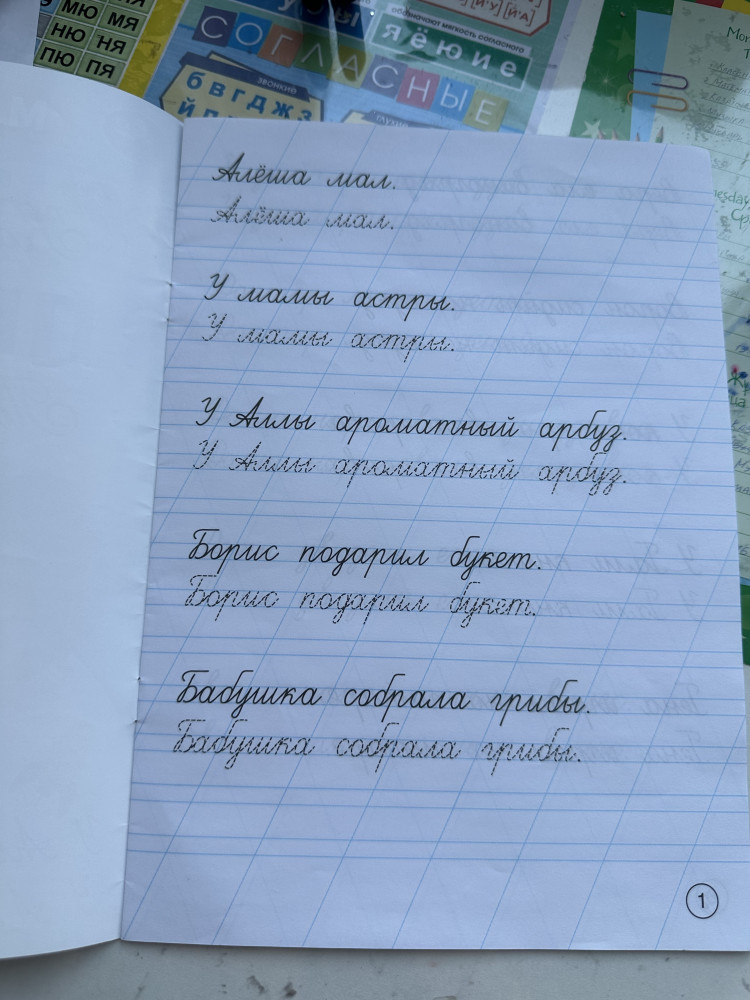 МЮ МЯ
НЮ НЯ
ПЮ ПЯ
СОГЛАСНЫЕ
обозначают мягкость согласного
я ё ю и е
ЗВОНКИЕ
б в г д ж з
Алёша мал.
Алёша мал.
У мамы астры.
У мамы астры.
У Аллы ароматный арбуз.
У Аллы ароматный арбуз.
Борис подарил букет.
Борис подарил букет.
Бабушка собрала грибы.
Бабушка собрала грибы.
1